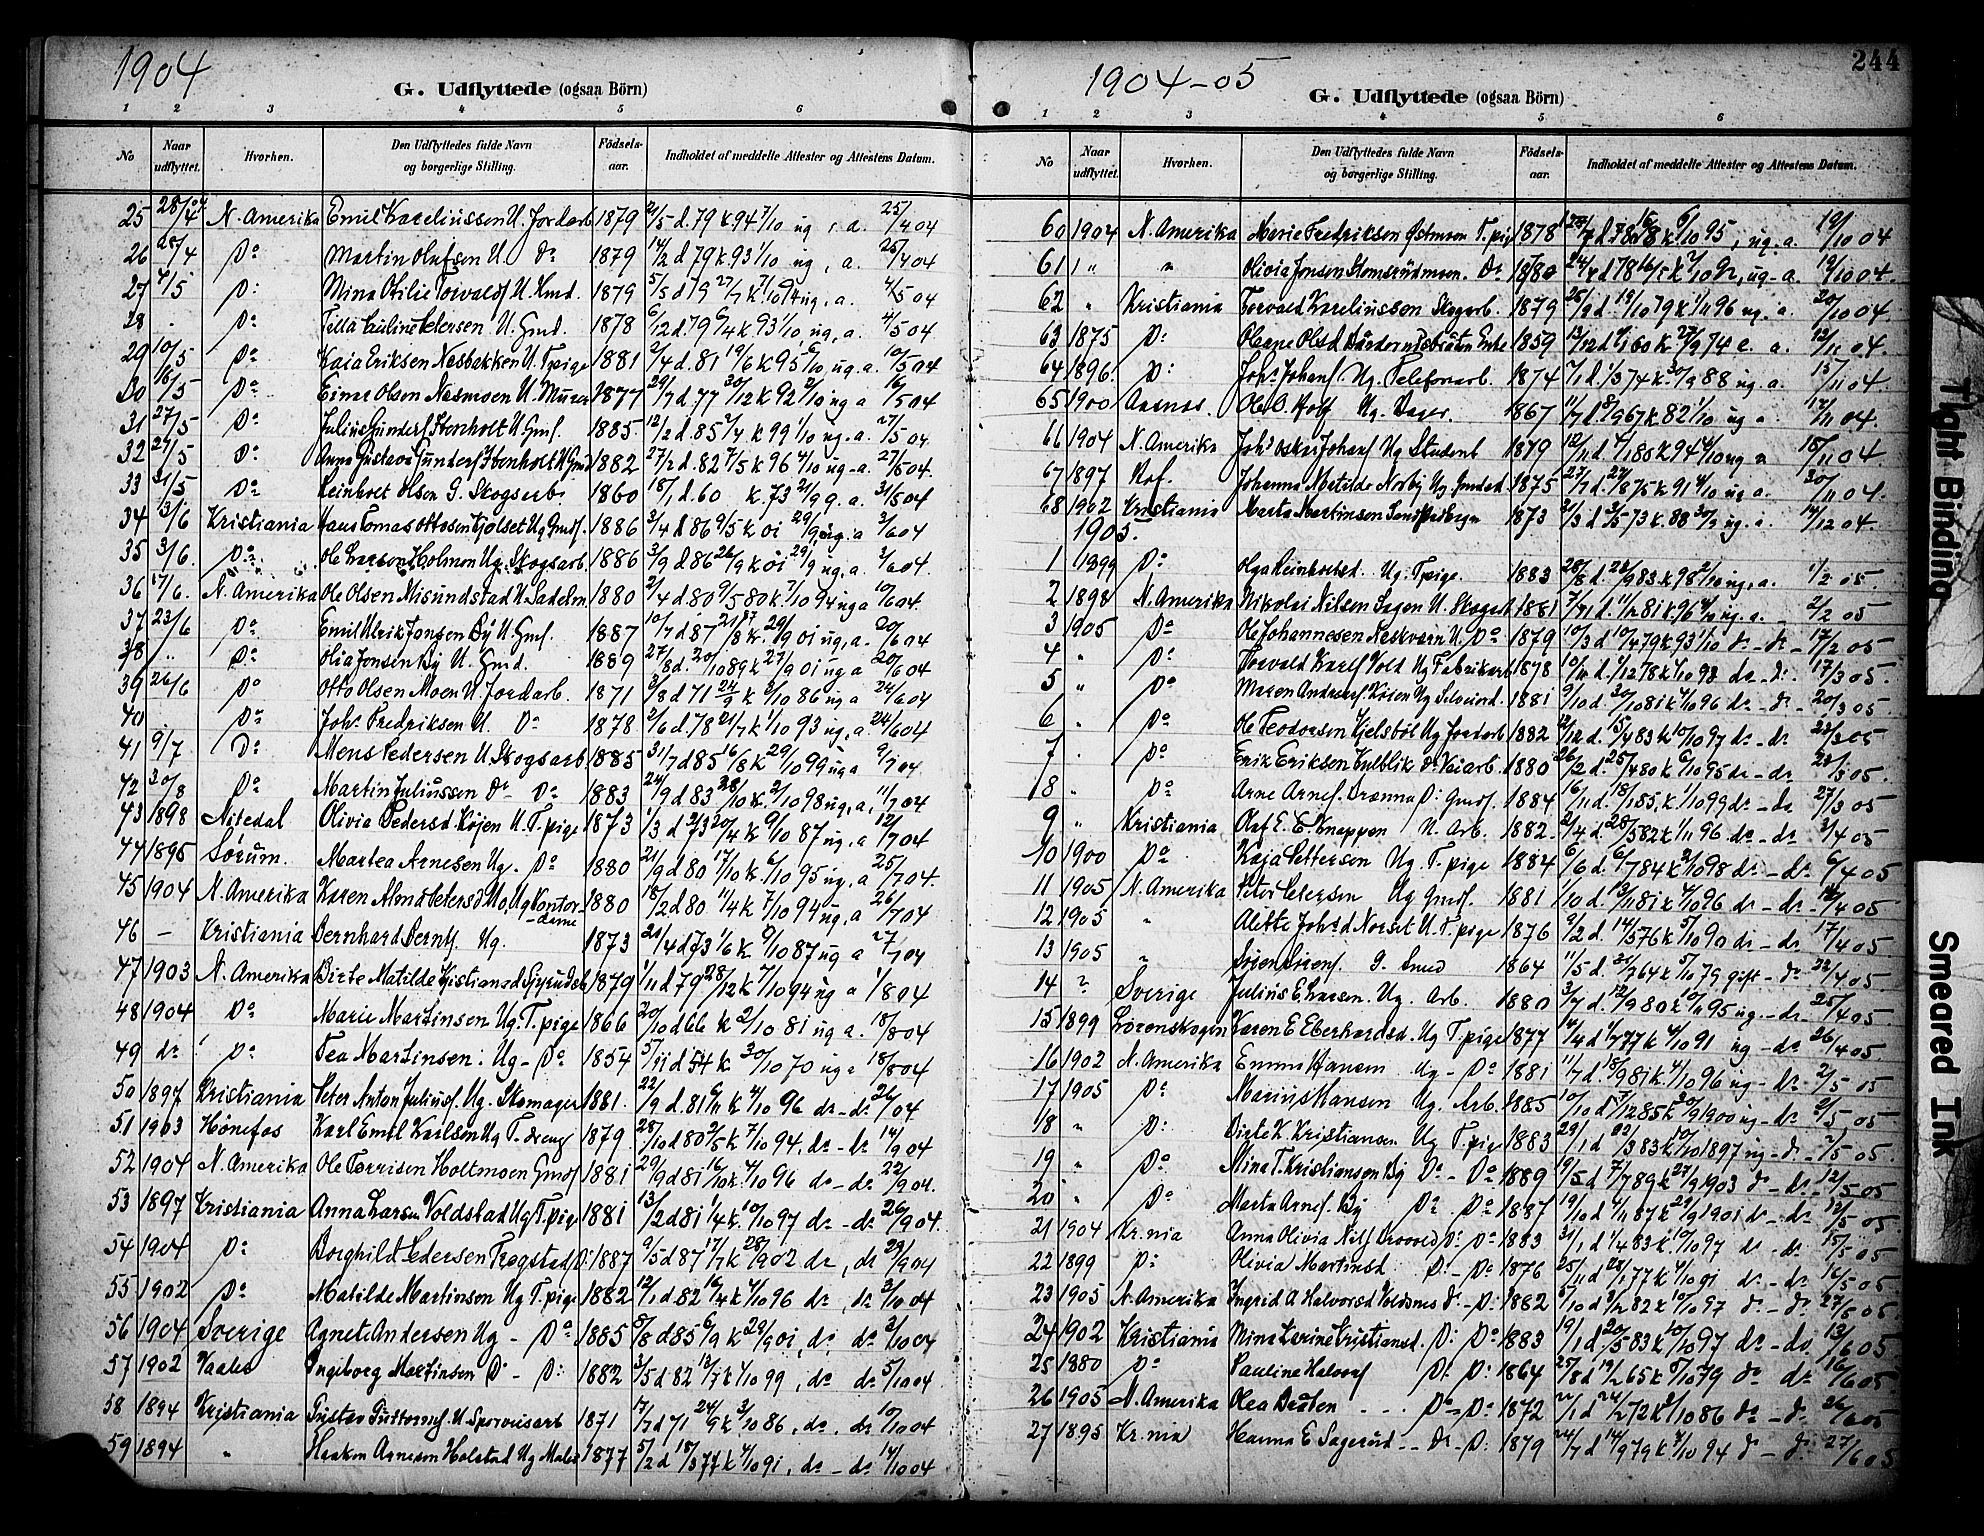 1904
G. Udflyttede (ogsaa Börn)
1 2 3 4 5 6
No Naar udflyttet. Hvorhen. Den Udflyttedes fulde Navn og borgerlige Stilling. Födsels-aar. Indholdet af meddelte Attester og Attestens Datum.
25 28/4 04 N. Amerika Emil Kareliussen U. Jordarb 1879 d. 79 k 94 7/10 ug . a. 25/4 04
26 28/4 Do Martin Olufsen U. Do 1879 14/2 d. 79 k 93 1/10 ug, a. 25/4 04
27 4/5 Do Mina Otilie Torvaldsf U. Gmd. 1879 5/5 d 79 27/7 k 7/10 94 ug, a. 4/5 04
28 . Do Pedersen U. Gmd. 1878 6/12 d. 79 6/4 k 93 1/10 ug, a. 4/5 04
29 10/5 Do Kaia Eriksen Næsbakken U. Tpige 1881 2/4 d. 81 19/6 k 95 ug. a. 10/5 04
30 16/5 Do Einar Olsen Næsmoen U. Murer 1877 29/7 d. 77 30/12 k 92 2/10 ug a 16/5 04
31 27/5 Do Julius Gundersf Stenholt U. Gmf. 1885 12/2 d. 85 2/4 k 99 1/10 ug. a. 27/5 04
32 27/5 Do Anna Gustava Gundersf Stenholt U Gmd 1882 27/2 d. 82 7/5 k 96 4/10 ug-a. 27/5 04.
33 31/5 Do Reinholt Olsen G. Skogsarb. 1860 18/1 d. 60 k. 73 g. a. 31/5 04
34 3/6 Kristiania Hans Tomas Ottosen Kjølset Ug Gmdf. 1886 3/4 d 86 9/5 k 01 29/9 ug. a 3/6 04
35 3/6 Do Ole Larsen Holmen Ug. Skogsarb. 1886 3/9 d 86 26/9 k 01 29/9 ug, a. 3/6 04
36 17/6 N. Amerika Ole Olsen Misundstad U. Sadelm. 1880 2/4 d 80 9/5 80 k. 7/10 94 ug a 10/6 04.
37 23/6 Do Emil Ulrik Jonsen By U. Gmf. 1887 10/7 d 87 21/8 k. 29/9 01 ug, a. 20/6 04
38 " Do Olia Jonsen By U. Gmd. 1889 27/8 d. 20/10 89 k 27/9 01 ug a 20/6 04
39 26/6 Do Otto Olsen Moen U. Jordarb. 1871 3/8 d 71 24/9 k 2/10 86 ug a 24/6 04
40 Do Johs. Fredriksen U. Do 1878 2/6 d. 78 21/7 k 1/10 93 ug, a. 24/6 04
41 9/7 Do Mens Pedersen U Skogsarb. 1885 31/7 d 85 16/8 k 29/10 99 ug a 9/7 04
42 20/8 Do Martin Juliussen Do Do 1883 24/9 d 83 28/10 k. 2/10 98 ug, a, 11/7 04
43 1898 Nitedal Olivia Pedersd Køjen U. T. pige 1873 1/3 d. 73 20/4 k. 9/10 87 ug, a 12/7 04
44 1895 Sørum. Martea Arnesen Ug. Do 1880 21/9 d 80 17/10 k. 6/10 95 ug, a 25/7 04.
45 1904 N. Amerika Karen Petersd Ug Kontor-dame 1880 18/2 d 80 11/4 k 7/10 94 ug, a 26/7 04
46 — Kristiania Bernhard Berntf. Ug. 1873 21/4 d 73 1/6 k 9/10 87 ug a 27/7 04
47 1903 N. Amerika Birte Matilde Kristiansd 1879 1/11 d 79 28/12 k 7/10 94 ug a 1/8 04
48 1904 Do Marie Martinsen Ug. T. pige 1866 20/10 d 66 k 2/10 81 ug a. 18/8 04
49 do Do Tea Martinsen. Ug - Do 1854 5/11 d 54 k 30/10 70 ug a 18/8 04
50 1897 Kristiania Peter Anton Juliusf. Ug. Skomager 1881. 22/9 d. 81 6/11 k 4/10 96 do - do 26/ 04
51 1903 Hønefos Karl Emil Karlsen Ug T. dreng 1879. 28/10 d 80 2/5 k 7/10 94. do - do 14/9 04
52 1904 N. Amerika Ole Torrisen Holtmoen Gmdf 1881 29/9 d 81 16/10 k. 4/10 96 do - do. 22/9 04.
53 1897 Kristiania Anna Larsen Voldstad Ug T. pige 1881 13/2 d 81 1/4 k. 10/10 97 do - do. 26/9 04.
54 1904 Do Borghild Pedersen Trøgstad Do 1887 9/5 d 87 17/7 k 28/9 1902 do, do 29/9 04
55 1902 Do Matilde Martinson Ug T. pige 1882 12/1 d. 82 16/4 k 4/10 96 do, do. 3/10 04
56 1904 Sverige Agnete Andersen Ug - Do 1885 8/8 d 85 6/9 k 29/9 01, do, do. 3/10 04
57 1902 Vaaler Ingeborg Martinsen Do - Do 1882 3/5 d 82 18/7 k 4/10 99, do. do 5/10 04
58 1894 Kristiania Gustav Guttormsf U. Sporveisarb 1871 17/7 d 71 24/9 k 3/10 86, do. do. 10/10 04
59 1894 " Haakon Arnesen Holstad Ug Maler 1877 5/2 d 18/3 77 k 4/10 91, do - do. 14/10 04
1904-05
244
G. Udflyttede (ogsaa Börn)
1 2 3 4 5 6
No Naar udflyttet. Hvorhen. Den Udflyttedes fulde Navn og borgerlige Stilling. Födsels-aar. Indholdet af meddelte Attester og Attestens Datum.
60 1904 N. Amerika Marie Fredriksen Østmoen T. pig 1878 6/10 95, ug. a. 19/10 04
61 " " Olivia Jonsen Do. 1880 ug. a. 19/10 04.
62 " Kristiania Torvald Kareliussen Skogarb. 1879 25/9 d. 19/10 79 k 1/11 96 ug. a. 20/10 04.
63 1875 Do Oleane Olsd Enke 1859 13/12 d 1/1 60 k 27/9 74 e. a. 12/11 04.
64 1896. Do Johs. Johansf. Ug. Telefonarb. 1874 7/1 d. 1/3 74 k. 30/9 88 ug. a. 15/11 04.
65 1900 Aasnes. Ole O. Hoff Ug. Bager. 1867 11/7 d 8/9 67 k 82 1/10 ug a 12/11 04.
66 1904 N. Amerika Johs. Oskar Johansf Ug Student 1879 12/11 d 4/1 80 k 94 4/10 ug a 18/11 04.
67 1897 Hof. Johanna Matilde Norby Ug. Gmdsd. 1875 27/7 d. 29/8 75 k 91 4/10 ug a. 20/11 04.
68 1902 Kristiania Marta Martinsen 1873 2/3 d 3/5 73 k. 88 30/9 ug. a. 14/12 04.
1905.
1 1899 Do Olga Reinholtsd. Ug. T. pige. 1883 28/8 d. 23/9 83 k 98 2/10 ug, a. 1/2 05.
2 1898 N. Amerika Nikolai Nilsen Sagen U. Skogarb. 1881 ug. a. 2/2 05
3 1905 Do Ole Johannesen Næskværn U. Do 1879 10/3 d 10/4 79 k 93 1/10 do - do. 17/2 05
4 " Do Torvald Karlf Vold Ug Fabrikarb 1878 10/11 d. 1/12 78 k 1/10 93 do - do. 17/3 05.
5 " Do Maren Andersf. Køien Ug 1881 9/10 d. 30/10 81 k 4/10 96 do - do. 20/3 05
6 " Do Ole Teodorsen Kjelsbøl Ug Jordarb 1882 12/12 d. 15/4 83 k 10/10 97 do - do 23/3 05
7 . Do Erik Eriksen Kulblik Do Veiarb. 1880 26/2 d. 25/4 80 k 6/10 95 do - do. 23/3 05.
8 " Do Arne Arnef. Brænna Do Gmdf. 1884 16/11 d 18/1 85. k 1/10 99 do - do 27/3 05
9 " Kristiania Olaf E. E. Knappen U. Arb. 1882 2/4 d 28/5 82 k 1/11 96 do - do. 3/4 05
10 1900 Do Kaja Pettersen Ug. T. pige 1884 6/6 d. 6/7 84 k 2/10 98 do - do. 6/4 05
11 1905 N. Amerika Peter Petersen Ug Gmdf. 1881 1/10 d. 13/11 81 k 4/10 96 do - do - 12/4 05
12 1905 " Alette Johsd Norset U. T. pige 1876 9/2 d. 14/5 76 k 5/10 90 do - do. 17/4 05
13 1905 " Søren Sørensf. G. Smed 1864 11/5 d. 31/7 64 k 5/10 79 gift - do 22/4 05.
14 ? Sverige Julius E. Larsen. Ug. Arb. 1880 3/7 d. 12/9 80 k 10/11 95 ug. - do 25/4 05.
15 1899 Lørenskogen Karen E. Eberhardsd. Ug T. pige 1877 14/4 d. 1/7 77 k 4/10 91 ug - do 26/4 05.
16 1902 N. Amerika Emma Hansen Ug - Do 1881 11/7 d. 18/9 81 k. 4/10 96 ug - do. 2/5 05
17 1905 Do Marius Hansen Ug. Arb. 1885 10/10 d 7/12 85 k 30/9 1900 ug - do 2/5 05
18 " Do Birte K. Kristiansen Ug T. pige 1883 29/1 d. /3 83 k 10/10 1897 ug - do. 2/5 05.
19 " Do Mina T. Kristiansen By Do - Do 1889 19/5 d 7/7 89 k 27/9 1903 do - do - 12/5 05
20 " Do Marta Arnef. By Do. Do 1887 19/10 d 4/11 87 k 29/9 1901 do - do. 12/5 05
21 1904 Kr.nia Anna Olivia Nilsf Do Do 1883 31/1 d 1/4 83 k. 10/10 97 do - do. 15/5 05
22 1899 Do Olivia Martinsd. Do - Do 1876 25/11 d 28/1 77 k 4/10 91 do - do 16/5 05
23 1905 N. Amerika Ingrid A Halvorsd Voldsnes Do - Do 1882 5/10 d 3/12 82 k 10/10 97 do - do. 27/5 05
24 1902 Kristiania Mina Karine Kristiansd. Do Do 1883 19/1 d 20/5 83 k 10/10 97 do - do. 13/6 05
25 1880 Do Pauline Halvorsf Do Do 1864 25/8 d 19/2 65 k 5/10 79 do do 16/6 05.
26 1905 N. Amerika Olea Bråten - - - Do - Do 1872 /1 d 24/2 72 k 3/10 86 do - do 26/6 05
27 1895 Kr.nia Hanna E Sagerud - - Do - Do 1879 24/7 d 14/9 79 k 2/10 94 do - do. 27/6 05
Tight Binding
Smeared Ink